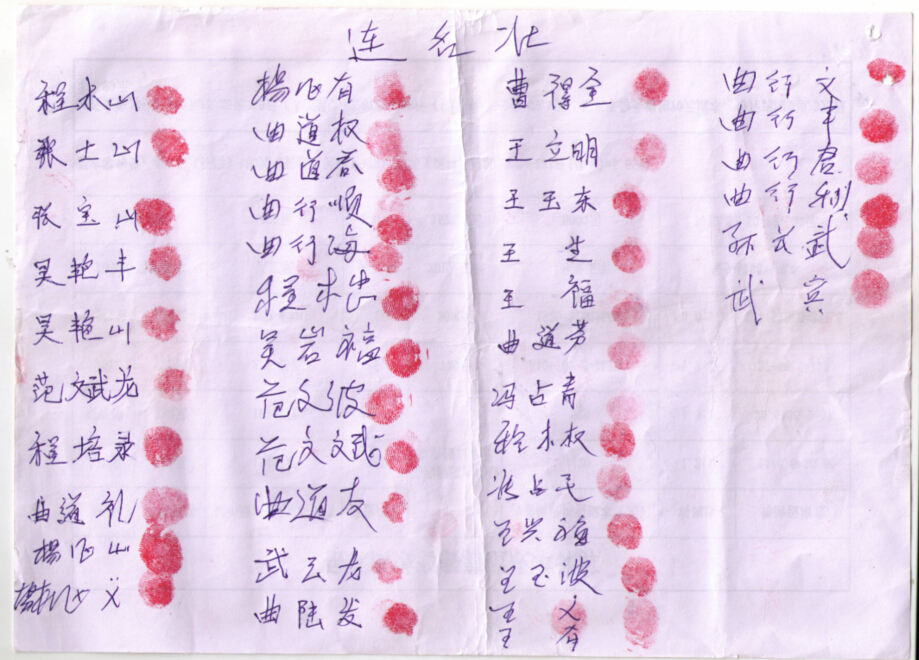 连红壮
程木山
張士山
张宝山
吴艳丰
吴艳山
范文武龙
程培录
曲道礼
楊化山
楊化义
楊化有
曲道权
曲道君
曲行顺
曲行海
程木忠
吴岩福
范文波
范文斌
曲道友
武云龙
曲陆发
曹得全
王立明
王玉东
王生
王福
曲道芳
冯占青
程木权
张占民
王兴福
王玉波
王义
王有
曲行文
曲行丰
曲行君
曲行利
孙长武
武宾